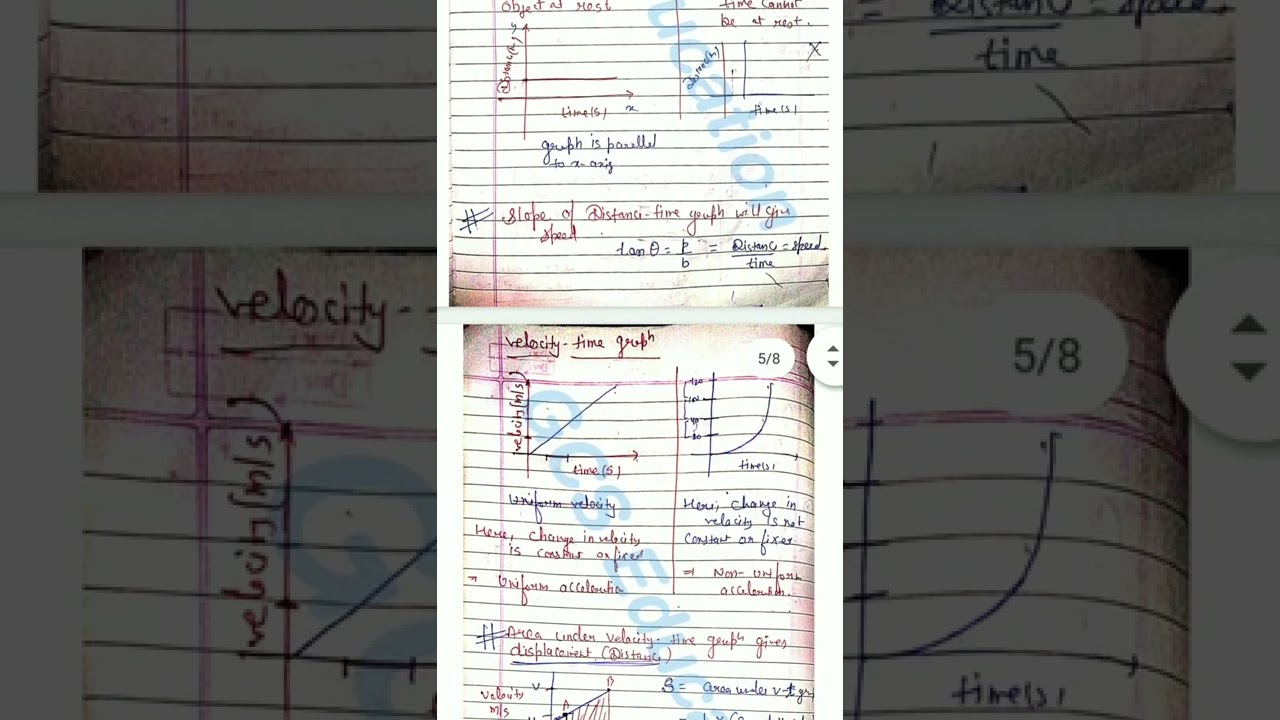 Object at rest
time cannot
be at rest.
y
Distance(m)
time(s)
x
Distance(m)
time(s)
X
graph is parallel
to x-axis
# Slope of Distance-time graph will give
speed
tan θ = P/b = Distance/time = speed.
velocity-time graph
5/8
velocity(m/s)
time(s)
120
100
40
20
time(s)
Uniform velocity
Here, change in velocity
is constant or fixed
⇒ Uniform acceleration
Here, change in
velocity is not
constant or fixed
⇒ Non-uniform
acceleration.
# Area under velocity-time graph gives
displacement. (Distance)
velocity
m/s
v
A
B
S = area under v-t gr
GCS Education
Distance = speed
time
velocity-
5/8
velocity(m/s)
time(s)